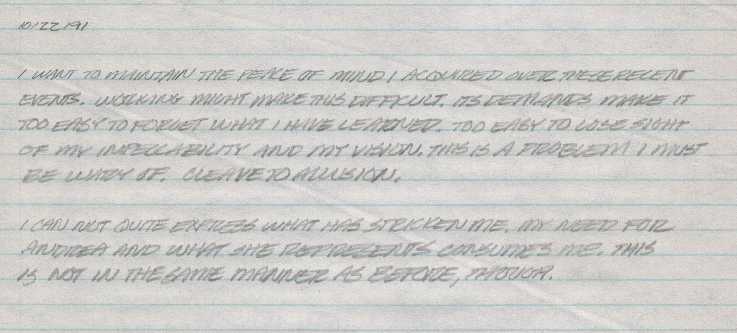 10/22/91
I WANT TO MAINTAIN THE PEACE OF MIND I ACQUIRED OVER THESE RECENT
EVENTS. WORKING MIGHT MAKE THIS DIFFICULT. ITS DEMANDS MAKE IT
TOO EASY TO FORGET WHAT I HAVE LEARNED. TOO EASY TO LOSE SIGHT
OF MY IMPECCABILITY AND MY VISION. THIS IS A PROBLEM I MUST
BE WARY OF. CLEAVE TO ALLUSION.
I CAN NOT QUITE EXPRESS WHAT HAS STRICKEN ME. MY NEED FOR
ANDREA AND WHAT SHE REPRESENTS CONSUMES ME. THIS
IS NOT IN THE SAME MANNER AS BEFORE, THOUGH.